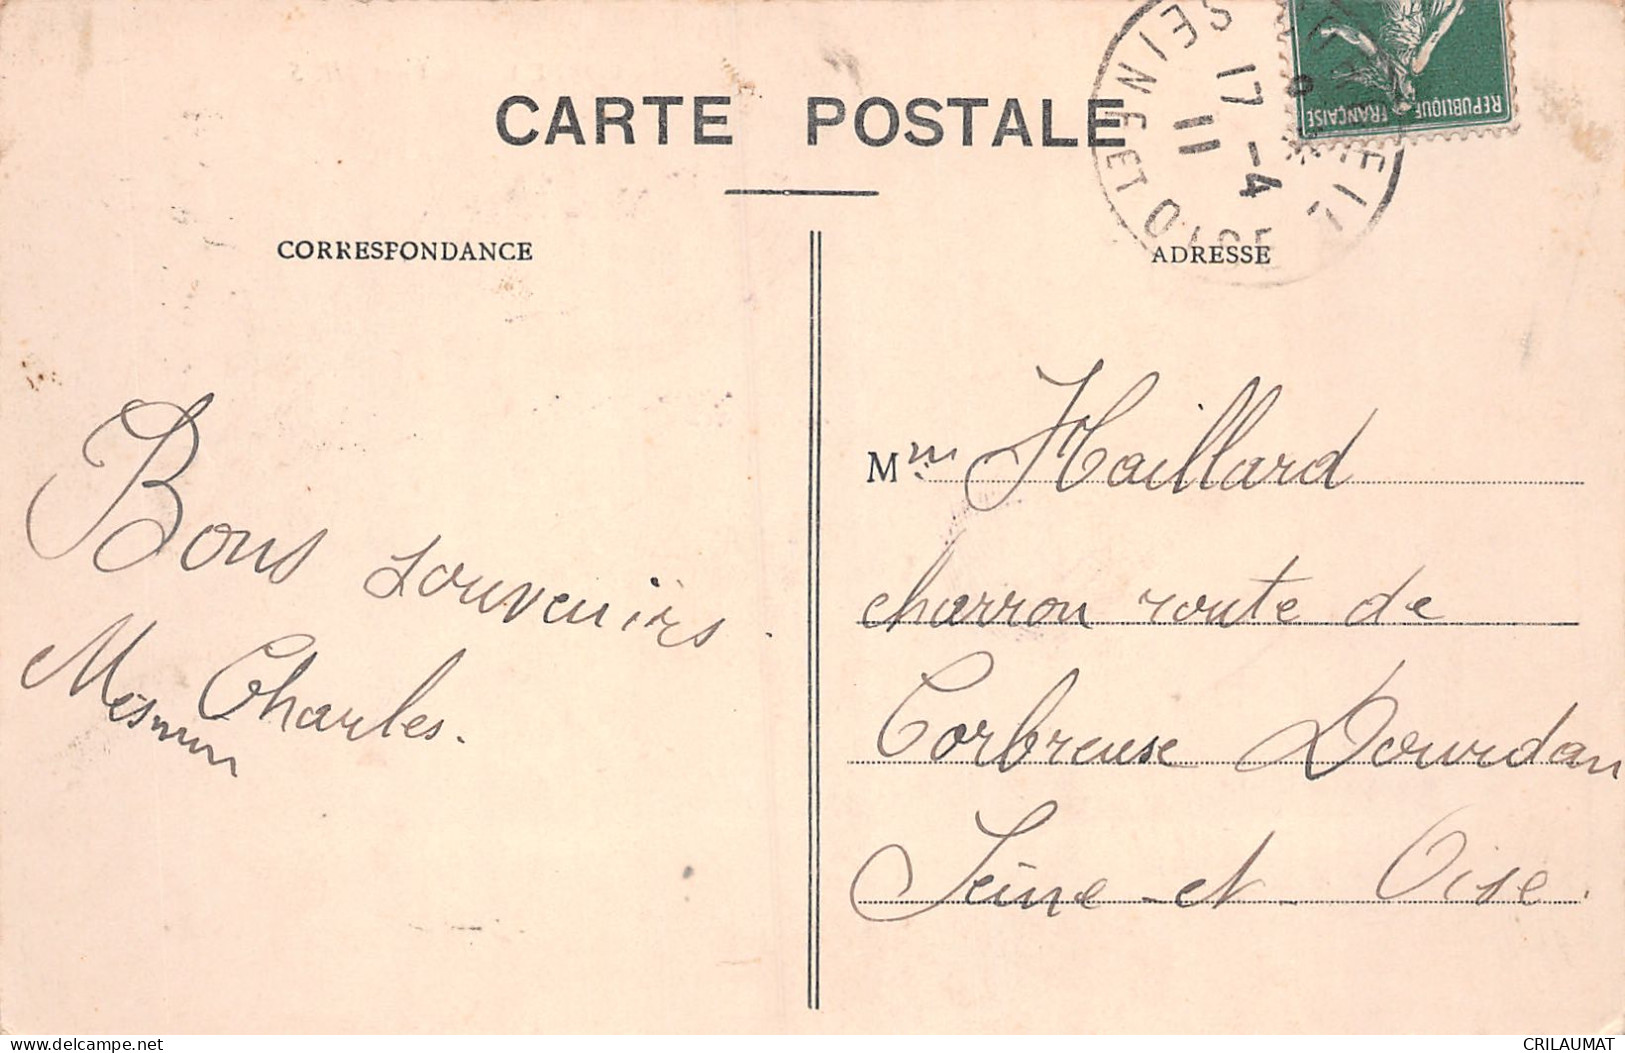 CARTE POSTALE
CORRESPONDANCE
ADRESSE
SEINE ET OISE
17 - 4
11
REPUBLIQUE FRANÇAISE
Bons souvenirs.
Charles.
Mm Haillard
charron route de
Corbreuse Dourdan
Seine - et - Oise.
delcampe.net
CRILAUMAT